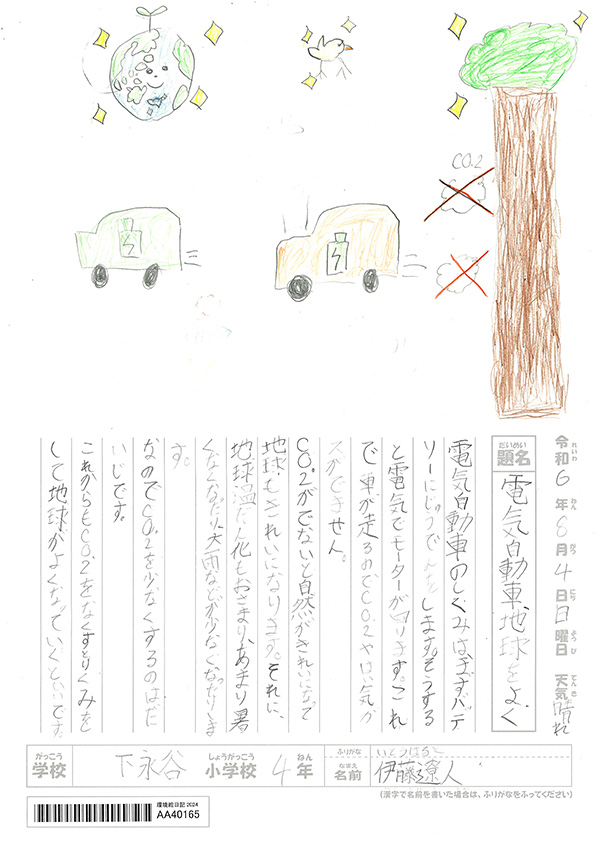 CO.2
令和6年8月4日日曜日 天気晴れ
れいわ ねん がつ にち ようび てんき
だいめい
題名 電気自動車地球をよく
電気自動車のしくみは、まずバテ
リーにじゅうでんをします。そうする
と電気でモーターが回ります。これ
で車が走るのでCO.2やはい気が
スがでません。
CO.2がでないと自然がきれいになって
地球もきれいになります。それに、
地球温だん化もおさまり、あまり暑
くなくなったり大雨などが少なくなったりしま
す。
なのでCO.2を少なくするのはだ
いじです。
これからもCO.2をなくすとりくみを
して地球がよくなっていくといいです
がっこう
学校
下永谷
しょうがっこう
小学校
4年
ねん
ふりがな
なまえ
名前
伊藤遼人
(漢字で名前を書いた場合は、ふりがなをふってください)
環境絵日記2024
AA40165